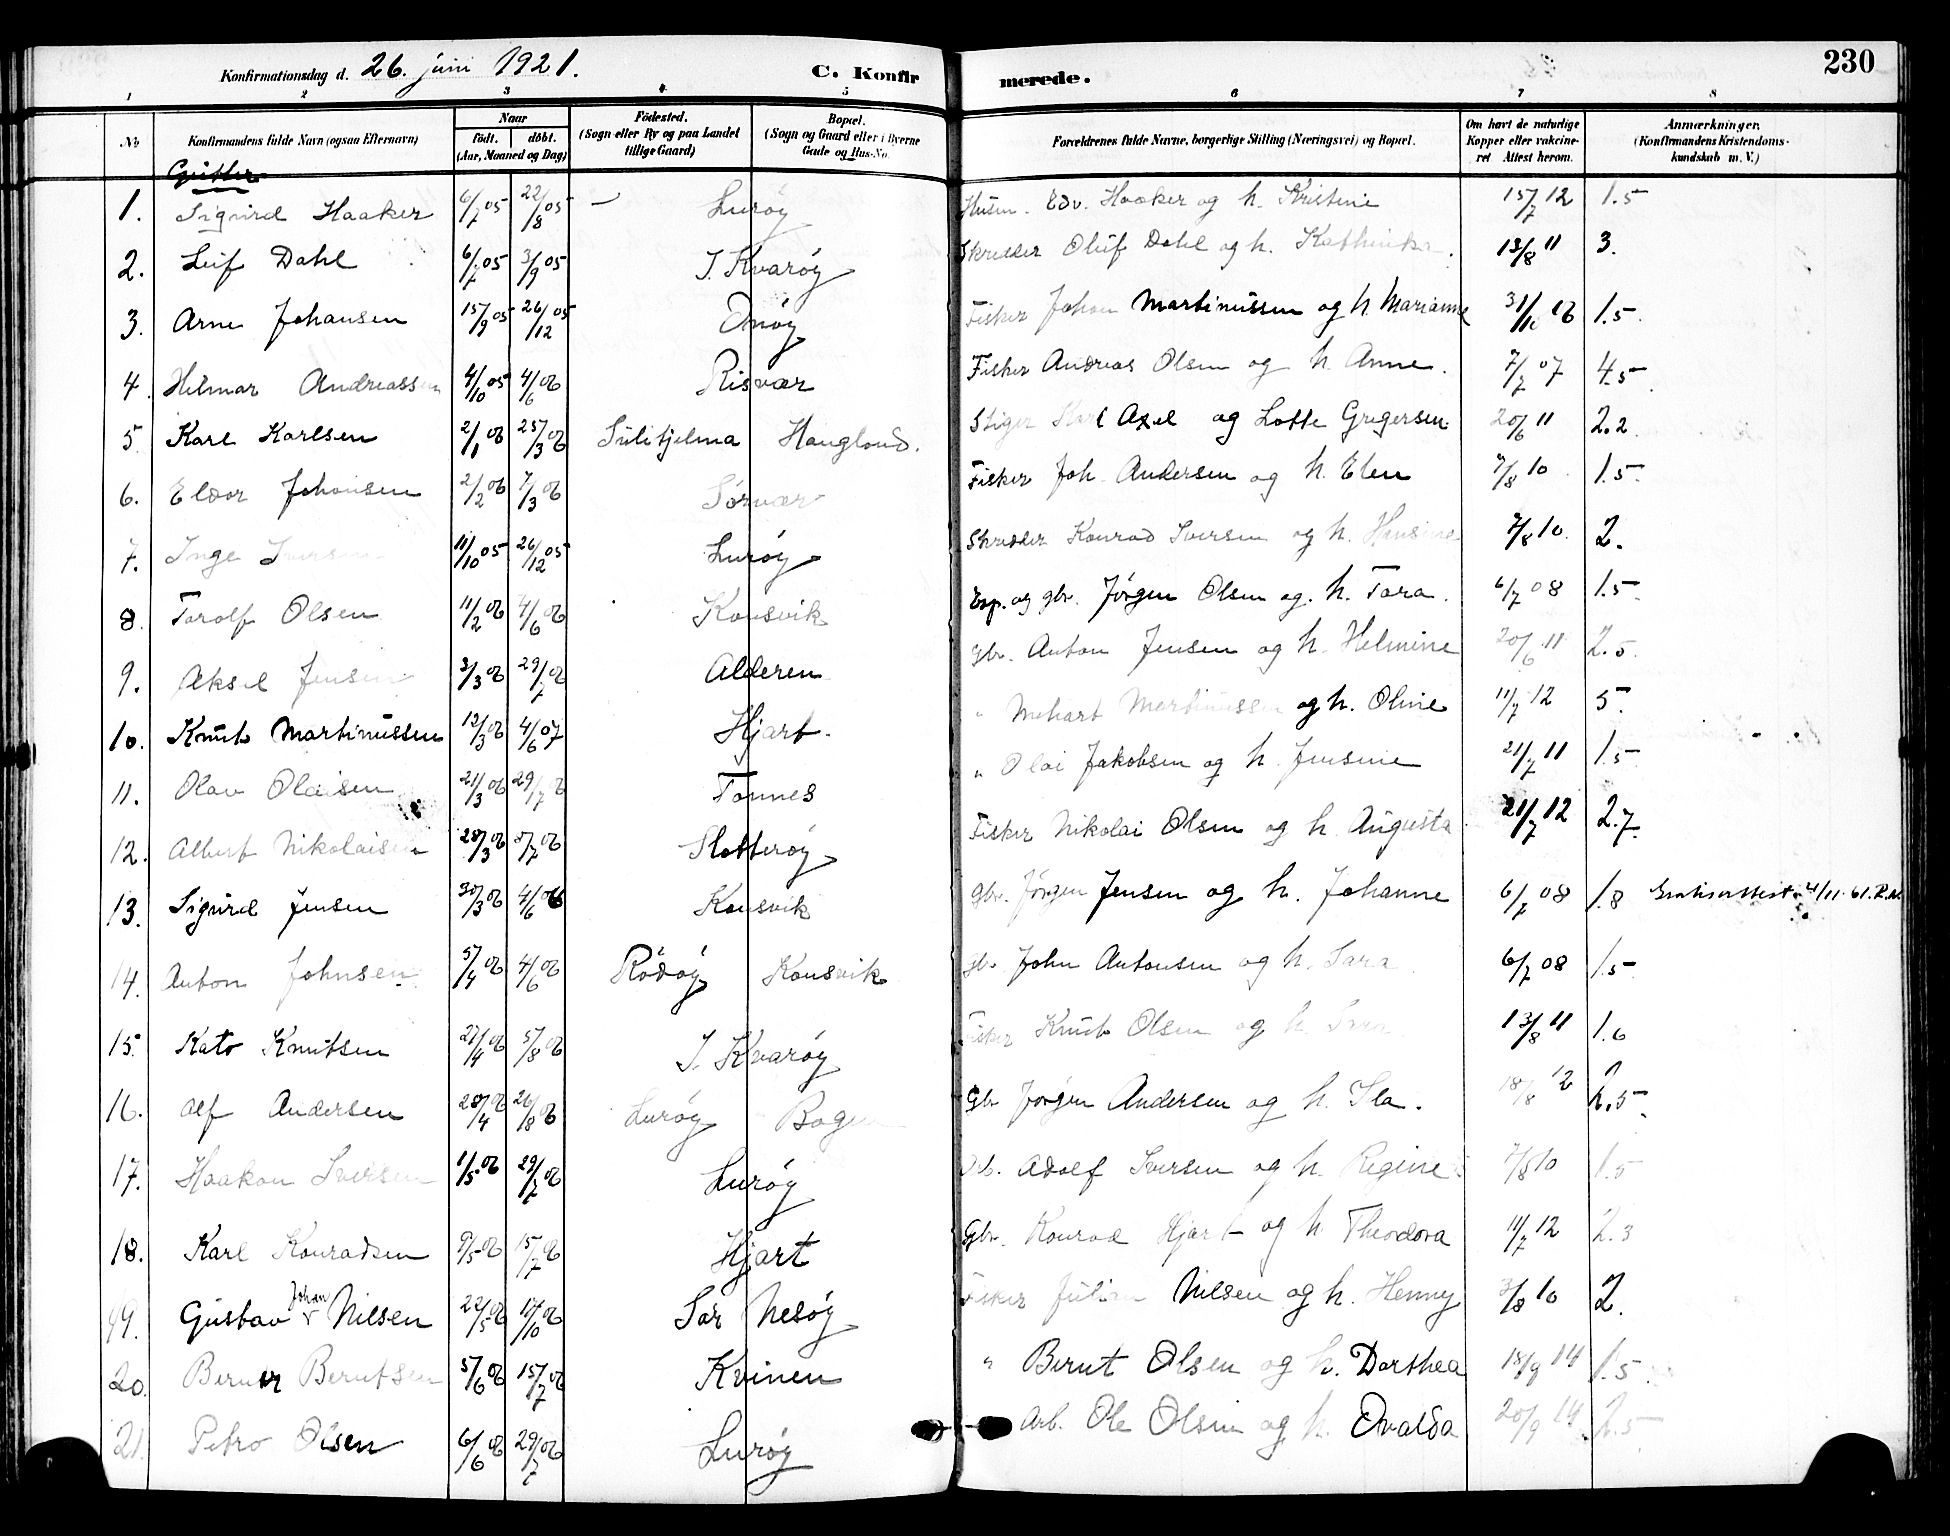 Konfirmationsdag d. 26. juni 1921. C. Konfirmerede. 230
1 2 3 4 5 6 7 8
No Konfirmandens fulde Navn (ogsaa Efternavn) Naar født. døbt. (Aar, Maaned og Dag) Fødested. (Sogn eller By og paa Landet tillige Gaard) Bopæl. (Sogn og Gaard eller i Byerne Gade og Hus-No. Forældrenes fulde Navne, borgerlige Stilling (Næringsvei) og Bopæl. Om havt de naturlige Kopper eller vakcineret Attest herom. Anmærkninger. (Konfirmandens Kristendomskundskab m. V.)
Gutter
1. Sigurd Haaker 6/7 05 22/8 05 Lurøy Husm. Edv. Haaker og h. Kristine 15/7 12 1.5
2. Leif Dahl 6/7 05 3/9 05 I. Kvarøy Skredder Oluf Dahl og h. Kathinka. 13/8 11 3.
3. Arne Johansen 15/9 05 26/12 05 Onøy Fisker Johan Martinussen og h Marianne 31/10 16 1.5.
4. Hilmar Andreassen 4/10 05 4/6 06 Risvær Fisker Andreas Olsen og h. Anne. 7/7 07 4.5
5 Karl Karlsen 2/1 06 25/3 06 Sulitjelma Haugland. Stiger Karl Axel og Lotte Gregersen 20/6 11 2.2
6. Eldor Johansen 2/2 06 7/3 06 Sørvær Fisker Joh. Andersen og h. Elen 7/8 10 1.5
7. Inge Iversen 11/10 05 26/12 05 Lurøy Skredder Konrad Iversen og h. Hansine 7/8 10. 2.
8. Torolf Olsen 11/2 06 4/6 06 Konsvik Exp. og gbr. Jørgen Olsen og h. Tora. 6/7 08 1.5
9. Aksel Jensen 3/3 06 29/7 06 Alderen Gbr. Anton Jensen og h. Helmine 20/6 11 2.5
10. Knut Martinussen 12/3 06 4/6 07 Hjart. " Methart Martinussen og h. Oline 11/7 12 5.
11. Olav Olaisen 21/3 06 29/7 06 Tonnes " Olai Jakobsen og h. Jensine 21/7 11 1.5
12. Albert Nikolaisen 28/3 06 8/7 06 Slotterøy Fisker Nikolai Olsen og h. Augusta 21/7 12 2.7.
13. Sigurd Jensen 30/3 06 4/6 06 Konsvik Gbr. Jørgen Jensen og h. Johanne 6/7 08 1.8 Gratisattest 4/11 61.
14. Anton Johnsen 5/4 06 4/6 06 Rødøy Konsvik Gbr John Antonsen og h. Sara 6/7 08 1.5
15. Kato Knutsen 27/4 06 5/8 06 I. Kvarøy Fisker Knut Olsen og h. Sara 13/8 11 1.6
16. Alf Andersen 28/4 06 26/8 06 Lurøy Bogen Gbr Jørgen Andersen og h. Ila. 18/8 12 2.5
17. Haakon Iversen 1/5 06 29/7 06 Lurøy Adolf Iversen og h. Regine 7/8 10 1.5
18. Karl Konradsen 9/5 06 15/7 06 Hjart Gbr. Konrad Hjart og h Theodora 11/7 12 2.3
19. Gustav Johan Nilsen 22/5 06 17/10 06 Sør Nesøy Fisker Julian Nilsen og h. Henny 3/8 10 2.
20. Bernt Berntsen 5/6 06 15/7 06 Kvinen " Bernt Olsen og h. Dorthea 18/9 14 1.5
21. Petro Olsen 6/6 06 29/7 06 Lurøy Arb. Ole Olsen og h. Ovalda 20/9 14 2.5